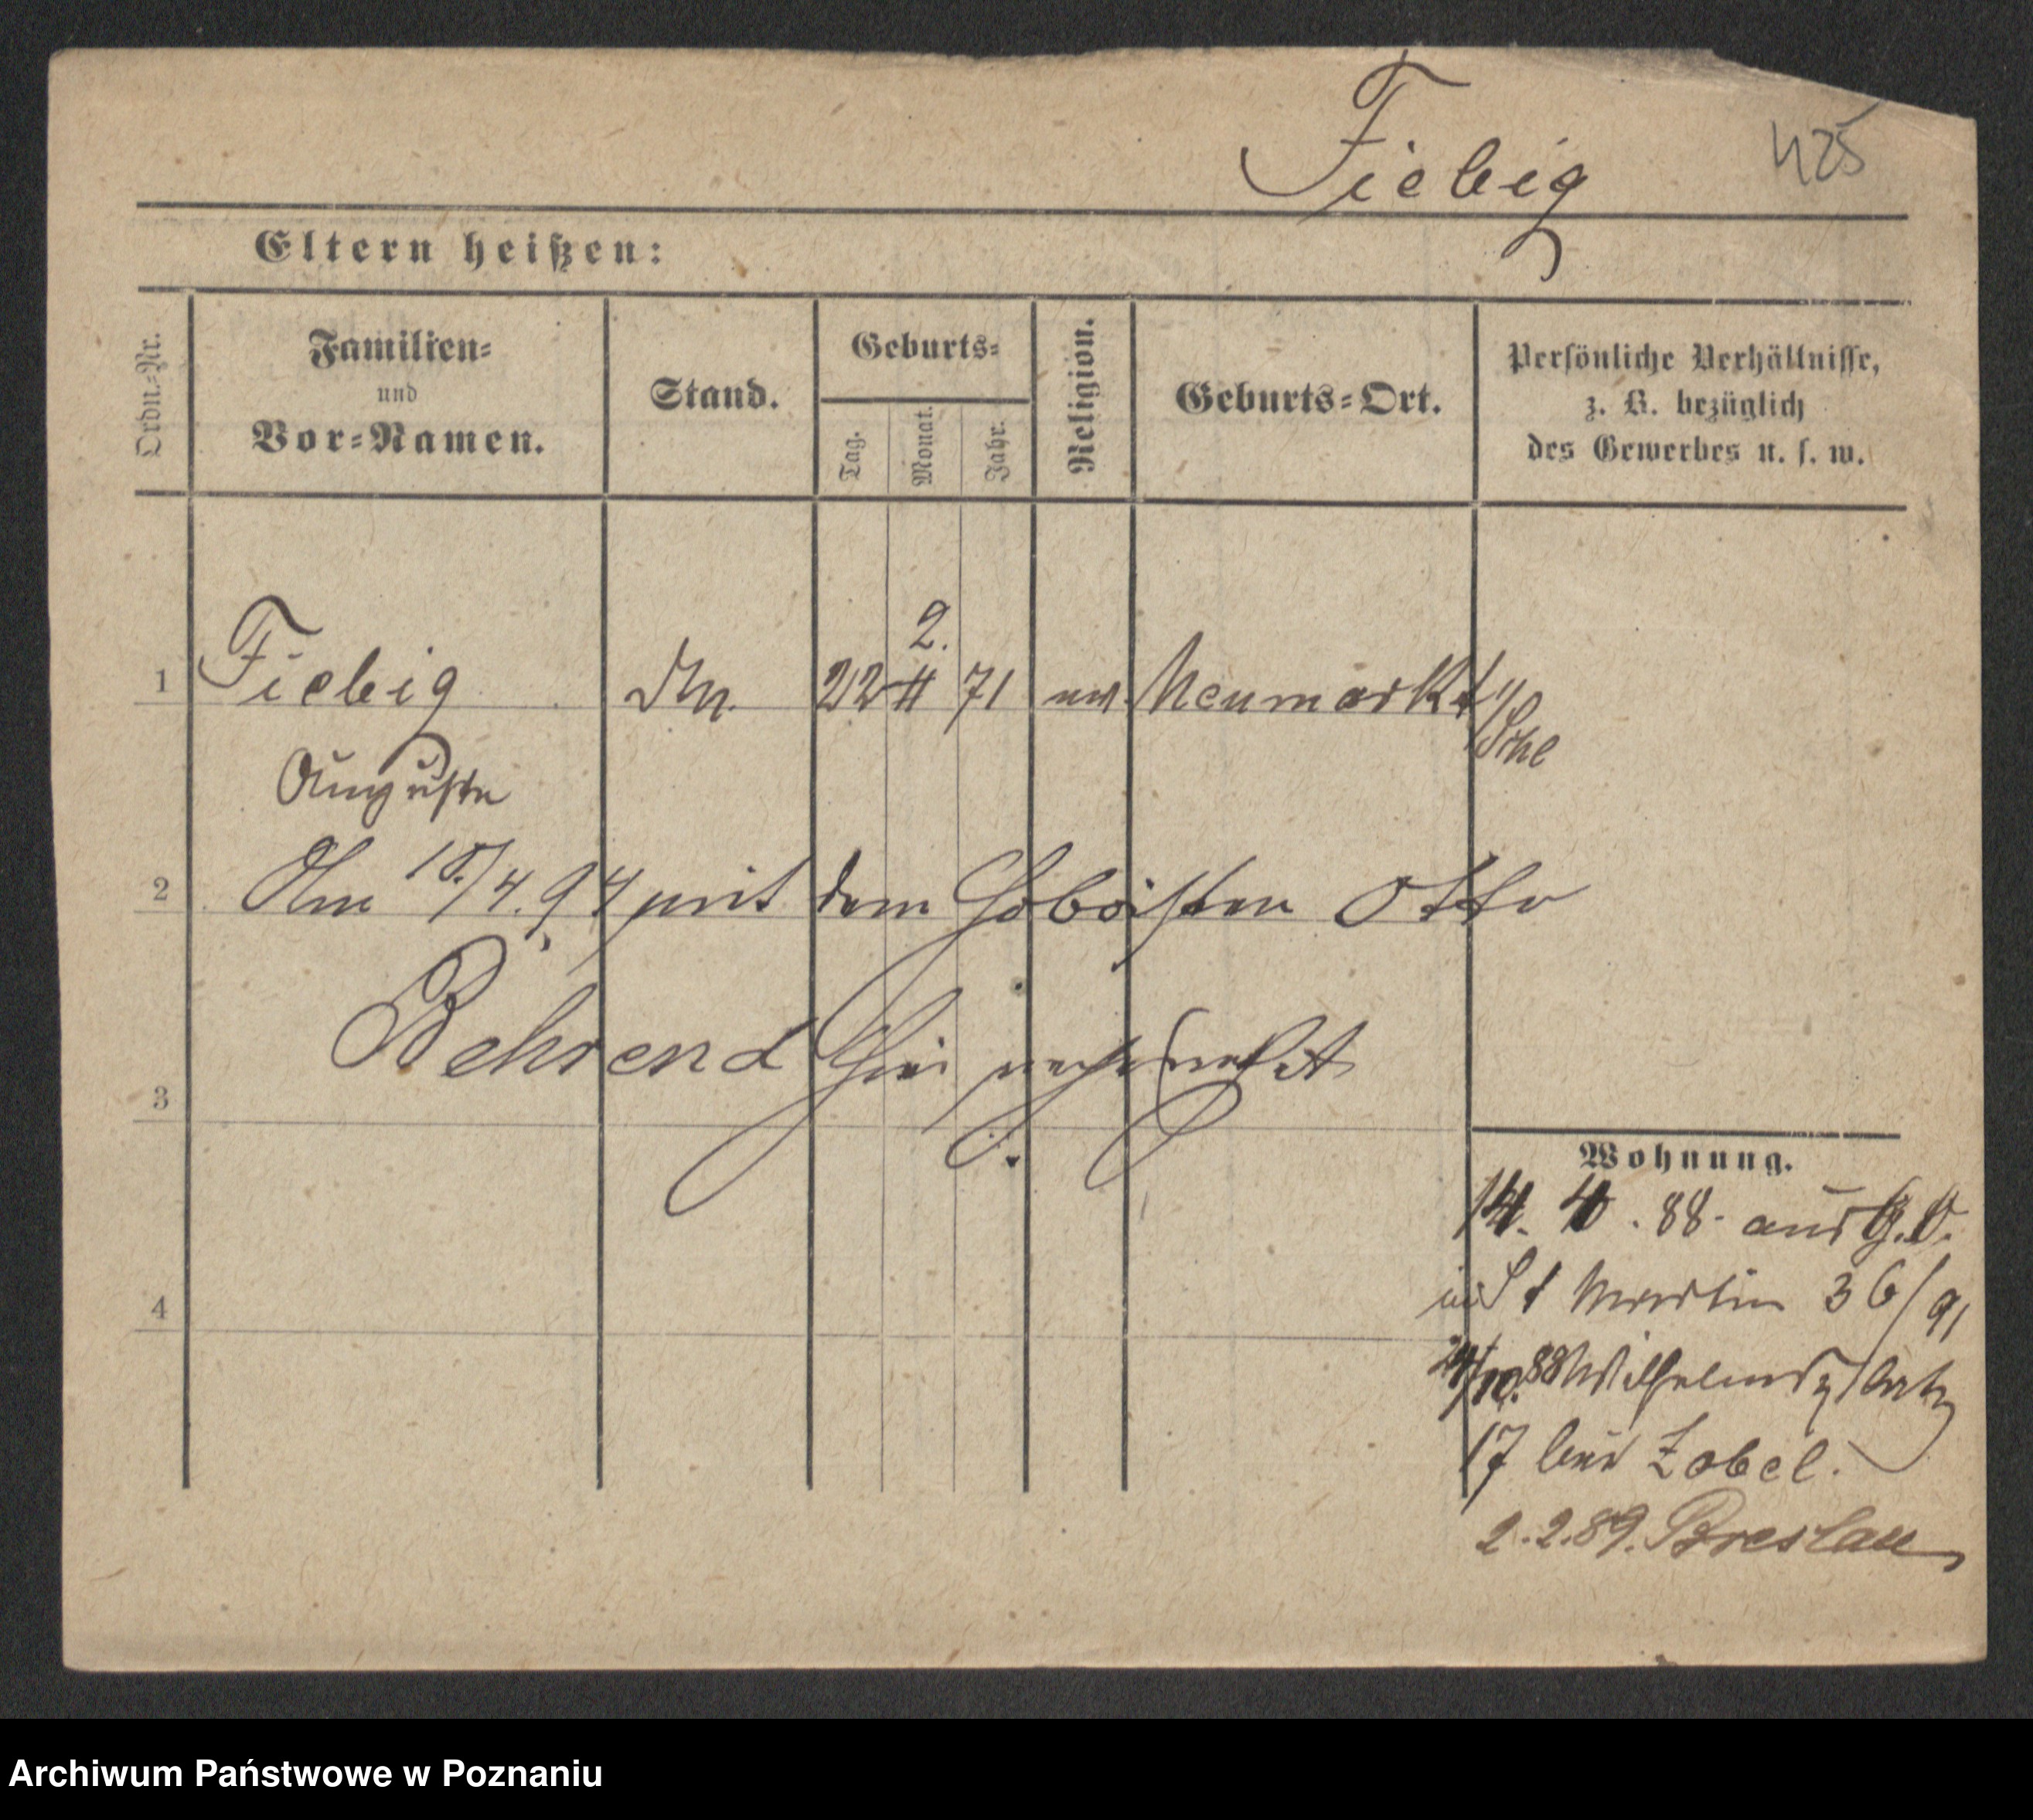 Fiebig
425
Eltern heißen:
Ordn.-Nr.
Familien-
und
Vor-Namen.
Stand.
Geburts-
Tag.
Monat.
Jahr.
Religion.
Geburts-Ort.
Persönliche Verhältnisse,
z. B. bezüglich
des Gewerbes u. s. w.
2.
1 Fiebig 22 71 ev. Neumarkt
i/Schl
Auguste
2 Am 10./4.94 mit dem Hoboisten Otto
Behrend hier
3
Wohnung.
14. 4. 88. aus
in St Martin 36/91
4
24/10.88 Wilhelmsplatz
17 bei Zobel.
2.2.89. Breslau
Archiwum Państwowe w Poznaniu